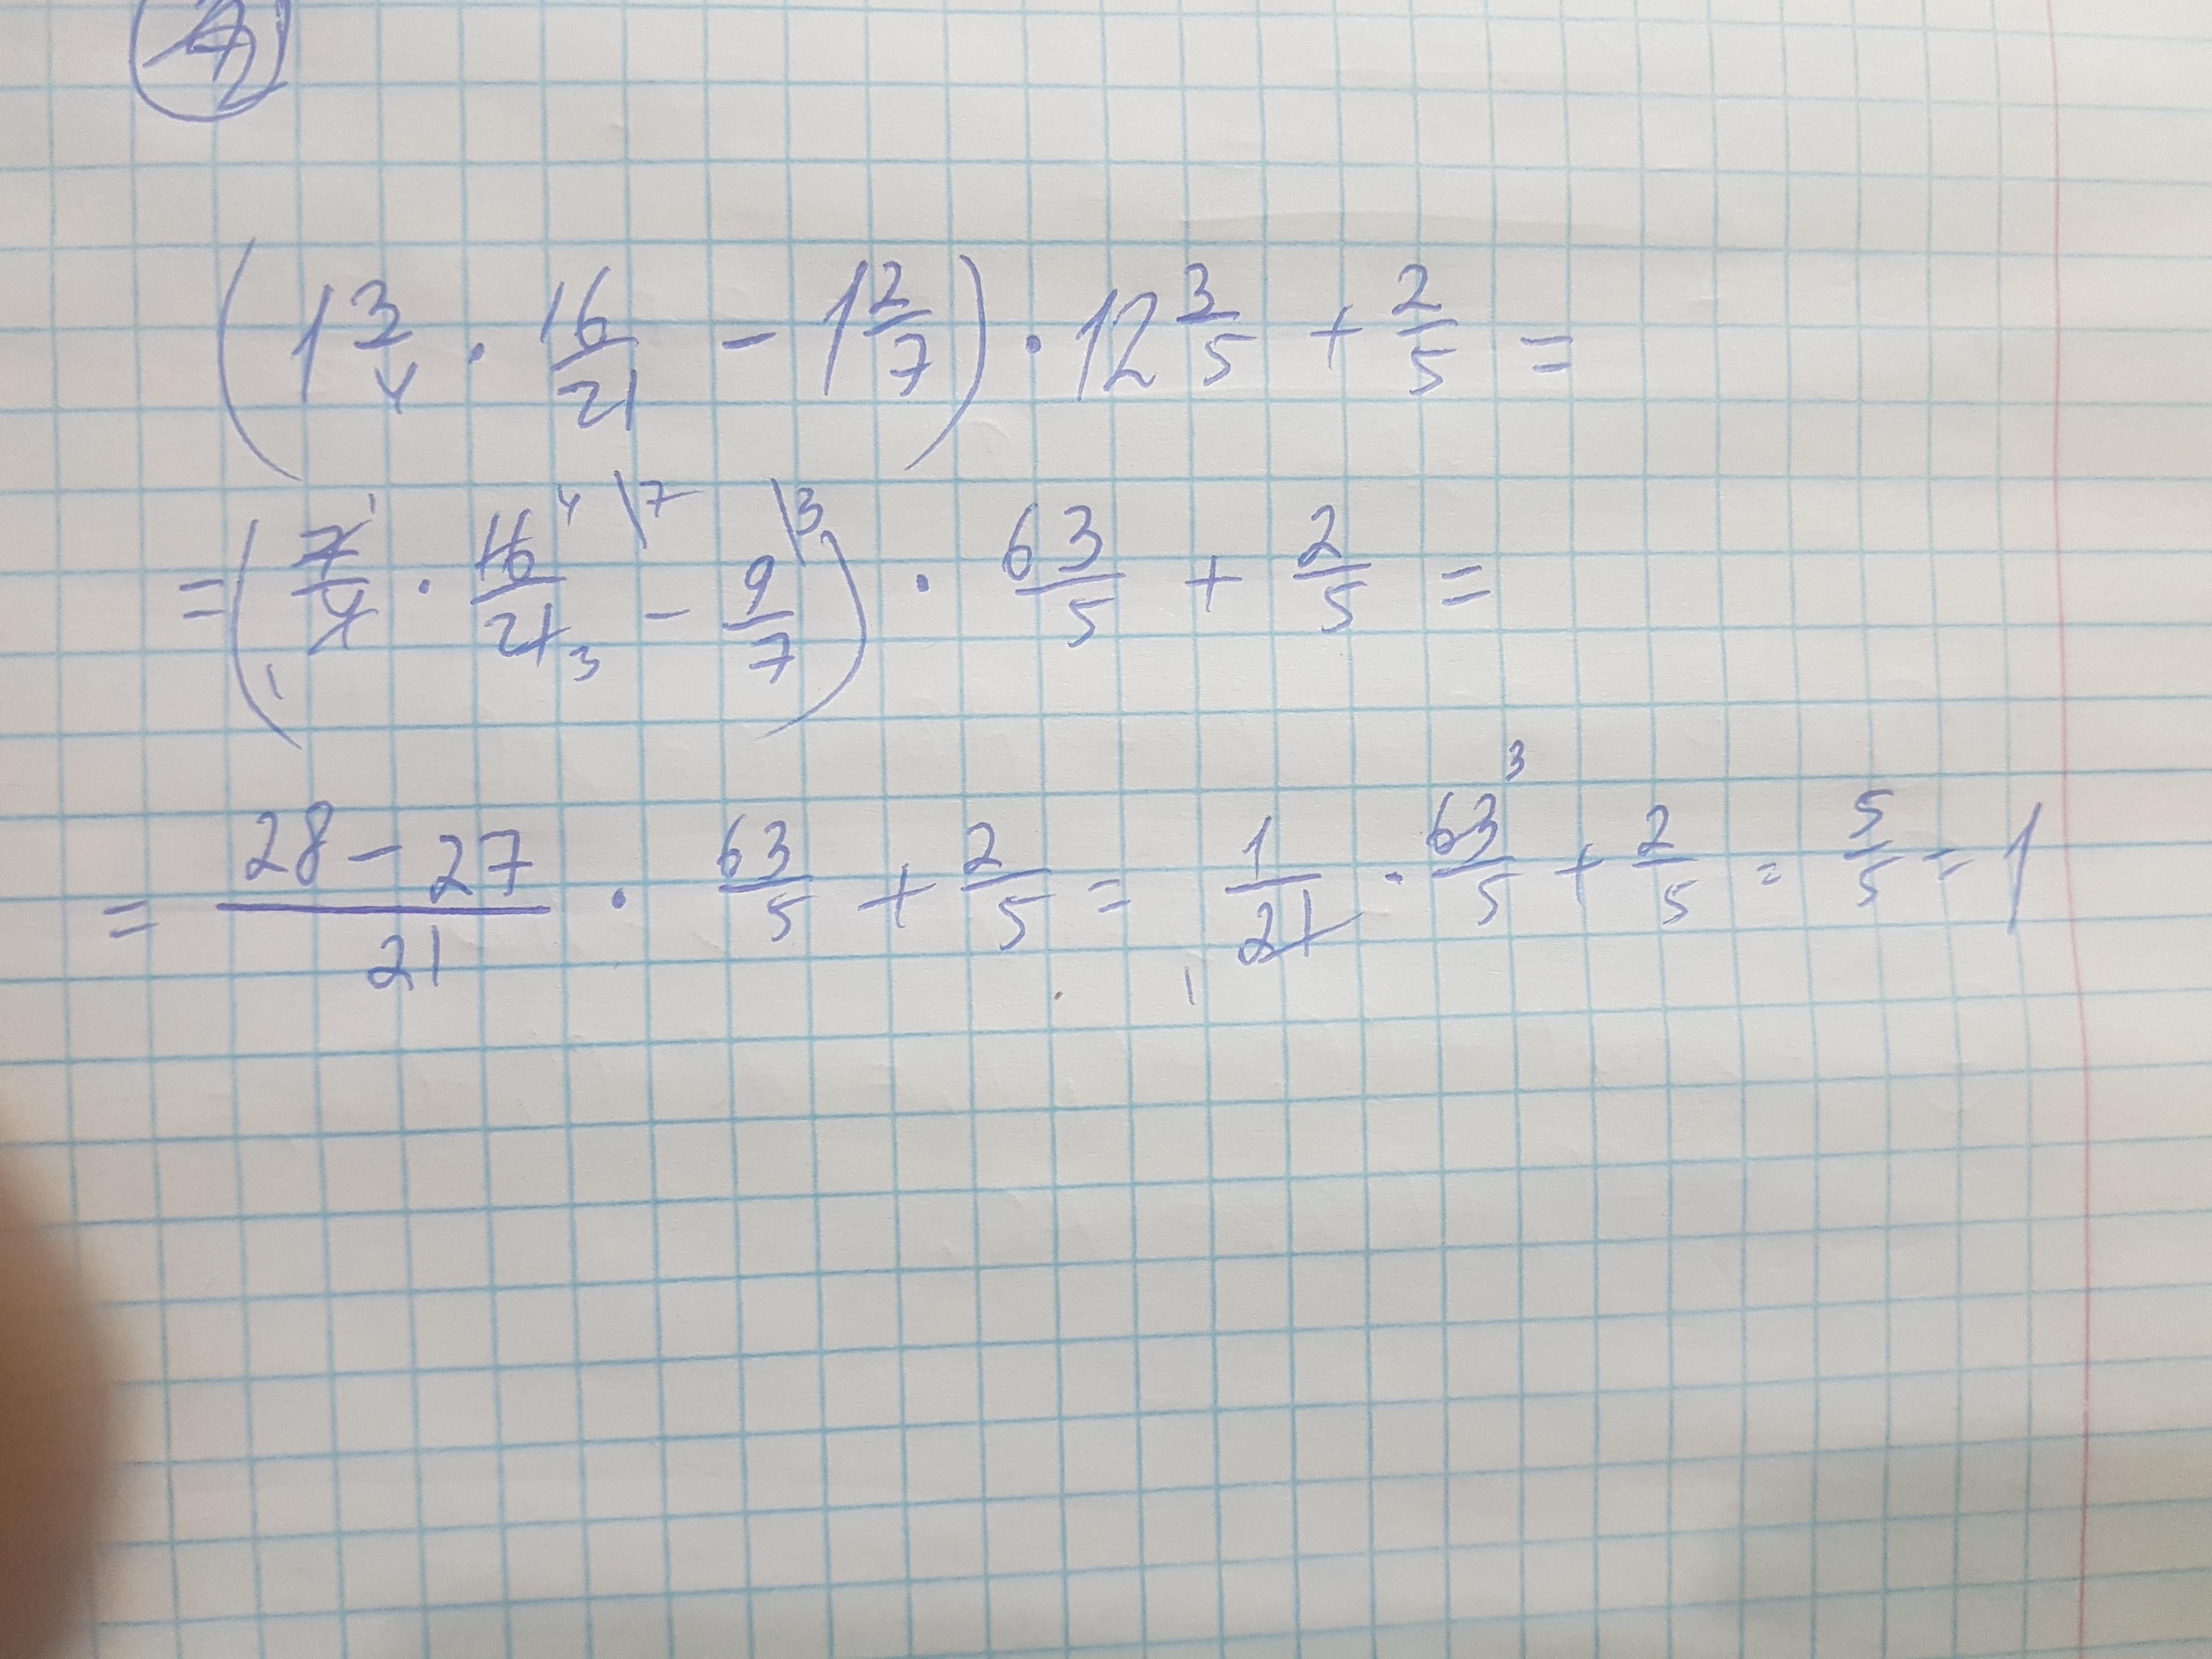 (1 3/4 · 16/21 - 1 2/7) · 12 3/5 + 2/5 =
= (7/4 · 16/21 - 9/7) · 63/5 + 2/5 =
= (28 - 27)/21 · 63/5 + 2/5 = 1/21 · 63/5 + 2/5 = 5/5 = 1